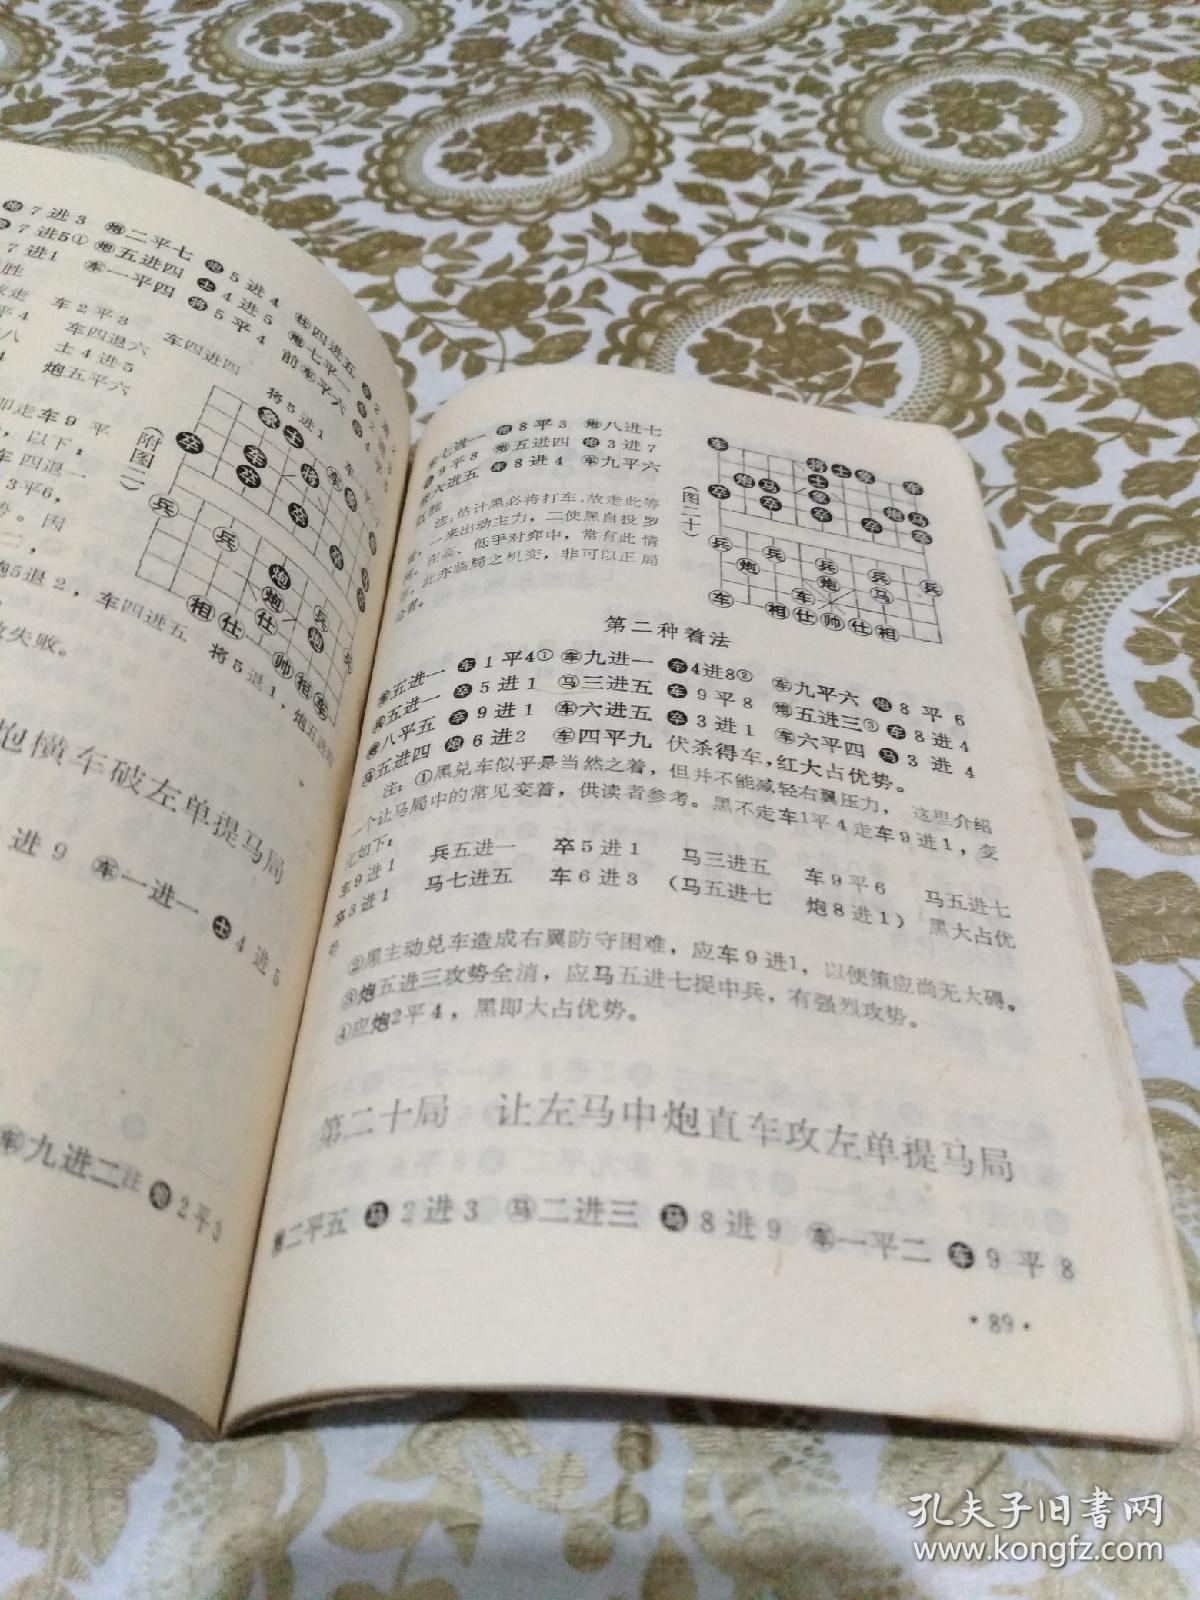 炮7进3 炮二平七 炮5进4 仕四进五
7进5① 炮五进四 士4进5 炮七平一
7进1 车一平四 将5平4 前车平六
胜
车2平3 车四进四 将5进1
平4 车四退六
八 士4进5
4 炮五平六
即走车9平
,以下:
车四退一
3平6,
势。因
二,
炮5退2,车四进五 将5退1,炮五进四
败失败。
(附图二)
象 士
卒 车 将 车 象
卒 卒 卒
兵 兵 炮 炮 兵
相 仕 仕 炮
帅 相 车
炮横车破左单提马局
进9 车一进一 士4进5
车九进二注 炮2平3
兵七进一 炮8平3 炮八进七
车9平8 炮五进四 炮3进7
车六进五 车8进4 车九平六
红胜
注:估计黑必将打车,故走此等
着,一来出动主力,二使黑自投罗
网。在高、低手对弈中,常有此情
形,此亦临局之机变,非可以正局
论者。
车 将 士 象 车
炮 马 士 象 炮 马
卒 卒 卒 卒 卒
(图二十)
兵 兵 兵 兵 兵
炮 炮 马
车
车 相 仕 帅 仕 相
第二种着法
兵五进一 车1平4① 车九进一 车4进8② 车九平六 炮8平6
兵五进一 卒5进1 马三进五 车9平8 炮五进三③ 车8进4
炮八平五 卒9进1 车六进五 卒3进1 车六平四 马3进4
马五进四 炮6进2 车四平九 伏杀得车,红大占优势。
注:①黑兑车似乎是当然之着,但并不能减轻右翼压力, 这里介绍
一个让马局中的常见变着,供读者参考。黑不走车1平4走车9进1,变
化如下:
车9进1 兵五进一 卒5进1 马三进五 车9平6 马五进七
卒3进1 马七进五 车6进3 (马五进七 炮8进1) 黑大占优
势
②黑主动兑车造成右翼防守困难,应车9进1,以便策应尚无大碍。
③炮五进三攻势全消,应马五进七捉中兵,有强烈攻势。
④应炮2平4,黑即大占优势。
第二十局 让左马中炮直车攻左单提马局
炮二平五 马2进3 马二进三 马8进9 车一平二 车9平8
·89·
孔夫子旧书网
www.kongfz.com